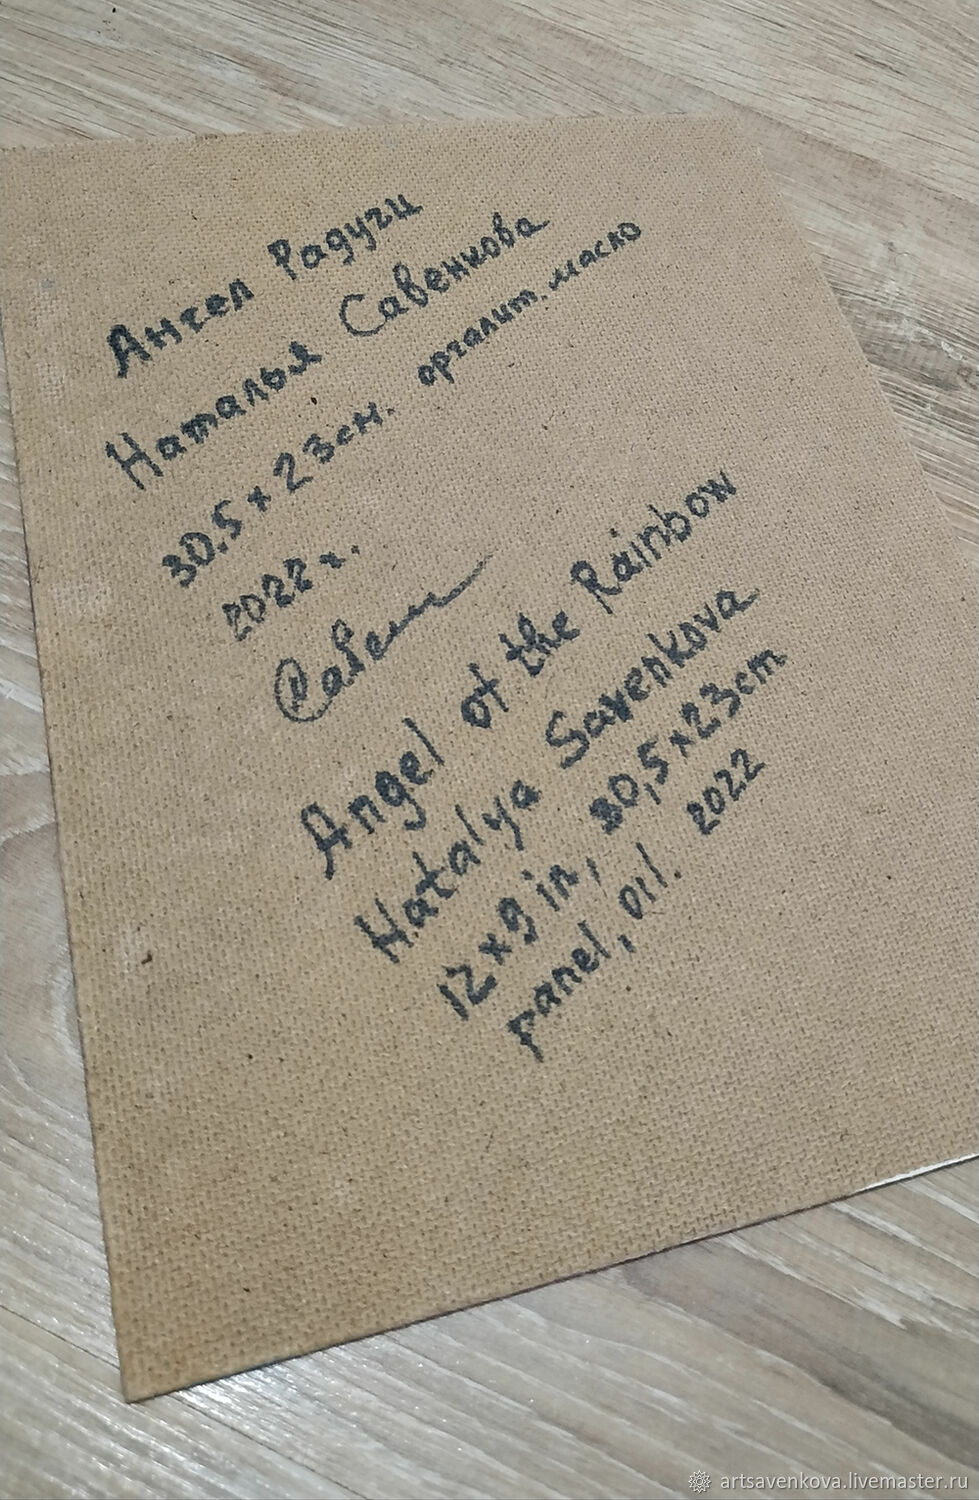 Ангел Радуги
Наталья Савенкова
30.5 х 23 см. оргалит. масло
2022 г.
Савен
Angel of the Rainbow
Natalya Savenkova
12 x 9 in, 30,5 x 23 cm
panel, oil. 2022
artsavenkova.livemaster.ru